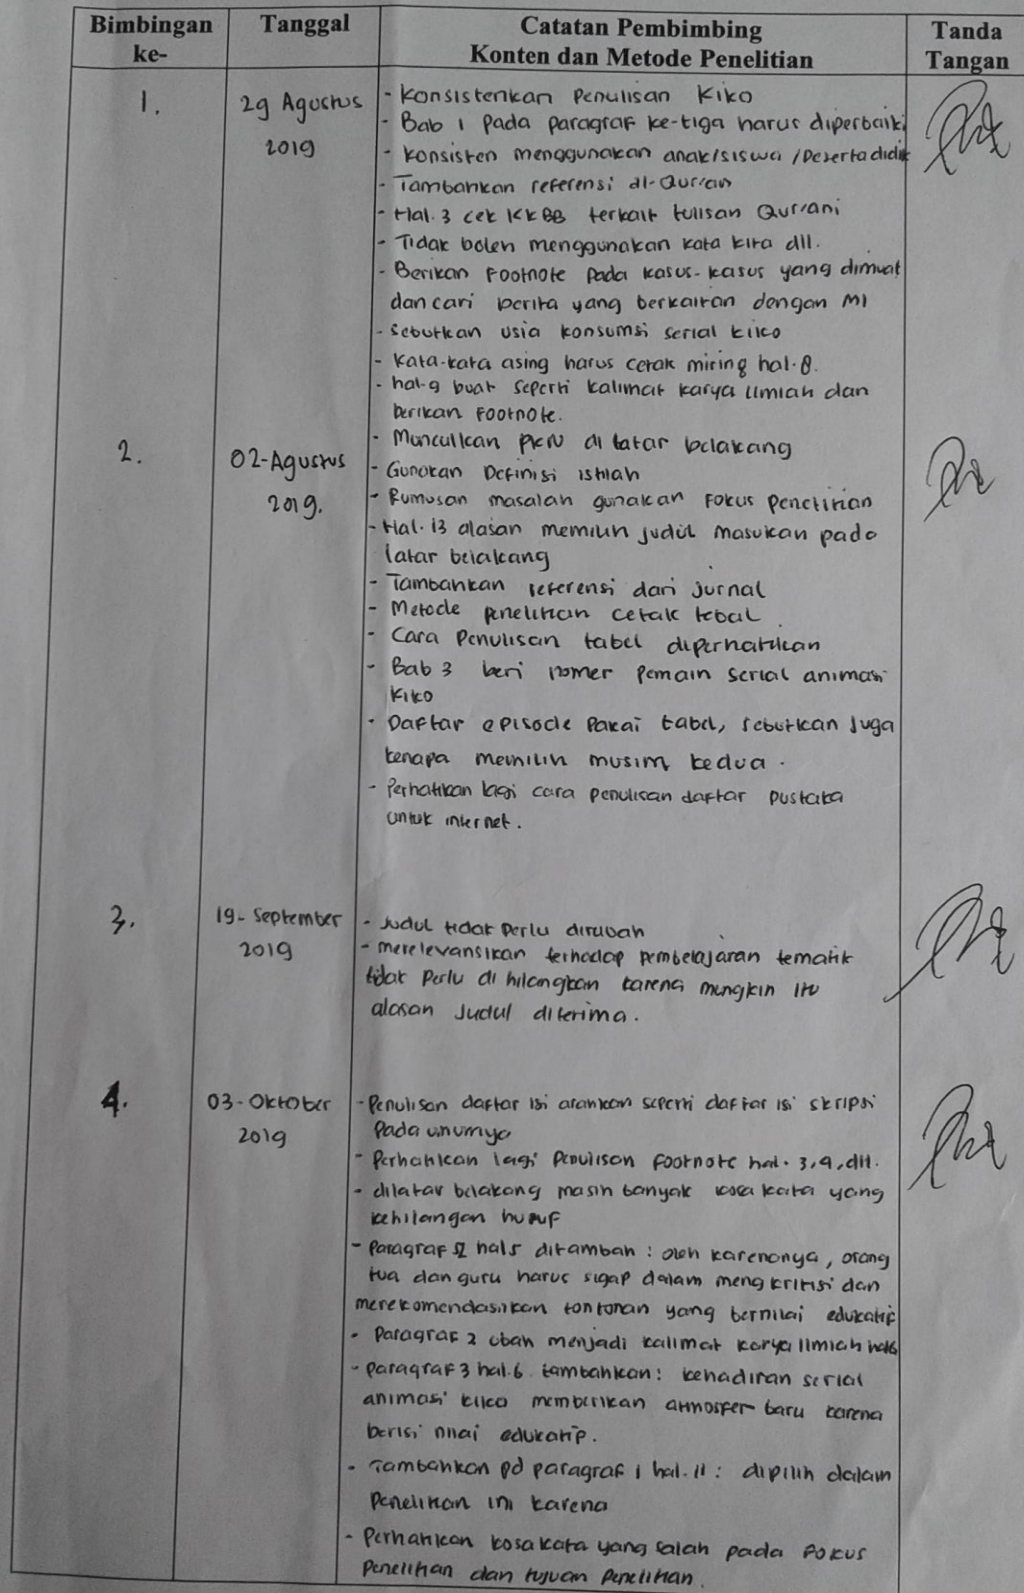 Bimbingan ke-
Tanggal
Catatan Pembimbing
Konten dan Metode Penelitian
Tanda Tangan
1.
29 Agustus
2019
- Konsistenkan Penulisan Kiko
- Bab 1 pada paragraf ke-tiga harus diperbaiki
- konsisten menggunakan anak/siswa/peserta didik
- Tambahkan referensi al-Qur'an
- Hal. 3 cek KKBB terkait tulisan Qur'ani
- Tidak boleh menggunakan kata kita dll.
- Berikan Footnote pada kasus-kasus yang dimuat
dan cari berita yang berkaitan dengan MI
- sebutkan usia konsumsi serial kiko
- kata-kata asing harus cetak miring hal. 8.
- hal-9 buat seperti kalimat karya ilmiah dan
berikan Footnote.
2.
02-Agustus
2019.
- Munculkan PKN di latar belakang
- Gunakan Definisi istilah
- Rumusan masalah gunakan Fokus penelitian
- Hal. 13 alasan memilih judul masukan pada
latar belakang
- Tambahkan referensi dari jurnal
- Metode penelitian cetak tebal.
- Cara Penulisan tabel diperhatikan
- Bab 3 beri nomer pemain serial animasi
Kiko
- Daftar episode Pakai tabel, sebutkan juga
kenapa memilih musim kedua.
- Perhatikan lagi cara penulisan daftar pustaka
untuk internet.
3.
19-September
2019
- Judul tidak perlu dirubah
- merelevansikan terhadap pembelajaran tematik
tidak perlu di hilangkan karena mungkin itu
alasan judul diterima.
4.
03-Oktober
2019
- Penulisan daftar isi arahkan seperti daftar isi skripsi
pada umumya
- Perhatikan lagi penulisan footnote hal. 3,9, dll.
- dilatar belakang masih banyak kosa kata yang
kehilangan huruf
- Paragraf hal 5 ditambah: oleh karenanya, orang
tua dan guru harus sigap dalam mengkritisi dan
merekomendasikan tontonan yang bernilai edukatif
- Paragraf 2 ubah menjadi kalimat karya ilmiah hal 6
- paragraf 3 hal. 6 tambahkan: kehadiran serial
animasi kiko memberikan atmosfer baru karena
berisi nilai edukatif.
- Tambahkan pd paragraf 1 hal. 11: dipilih dalam
penelitian ini karena
- Perhatikan kosa kata yang salah pada Fokus
Penelitian dan tujuan penelitian.